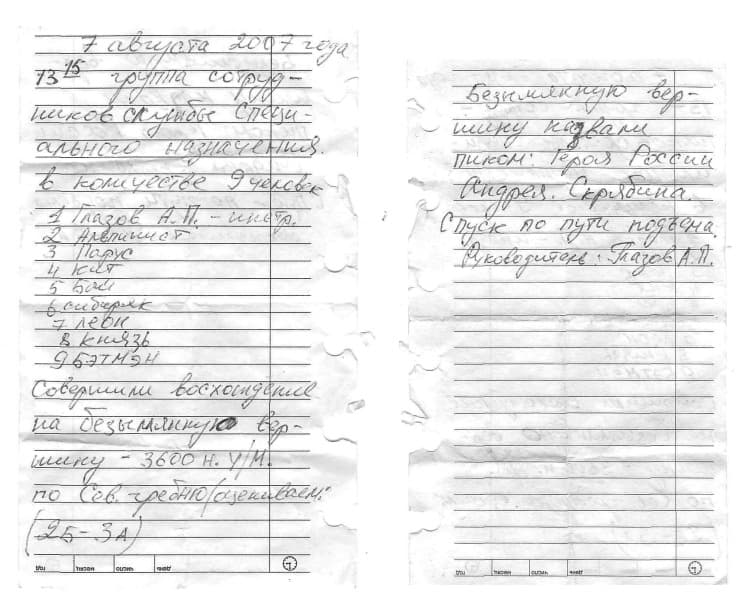 7 августа 2007 года
13 15 группа сотруд-
ников службы специ-
ального назначения.
в количестве 9 человек
1 Глазов А.П. – инстр.
2 Альпинист
3 Парус
4 Кит
5 Бай
6 сибиряк
7 Леон
8 князь
9 БЭТМЭН
Совершили восхождение
на безымянную вер-
шину – 3600 н. У/М.
по Сев. гребню/оцениваем:
(2Б – 3А)
Безымянную вер-
шину назвали
пиком: Героя России
Андрея. Скрябина.
Спуск по пути подъёма.
Руководитель: Глазов А.П.